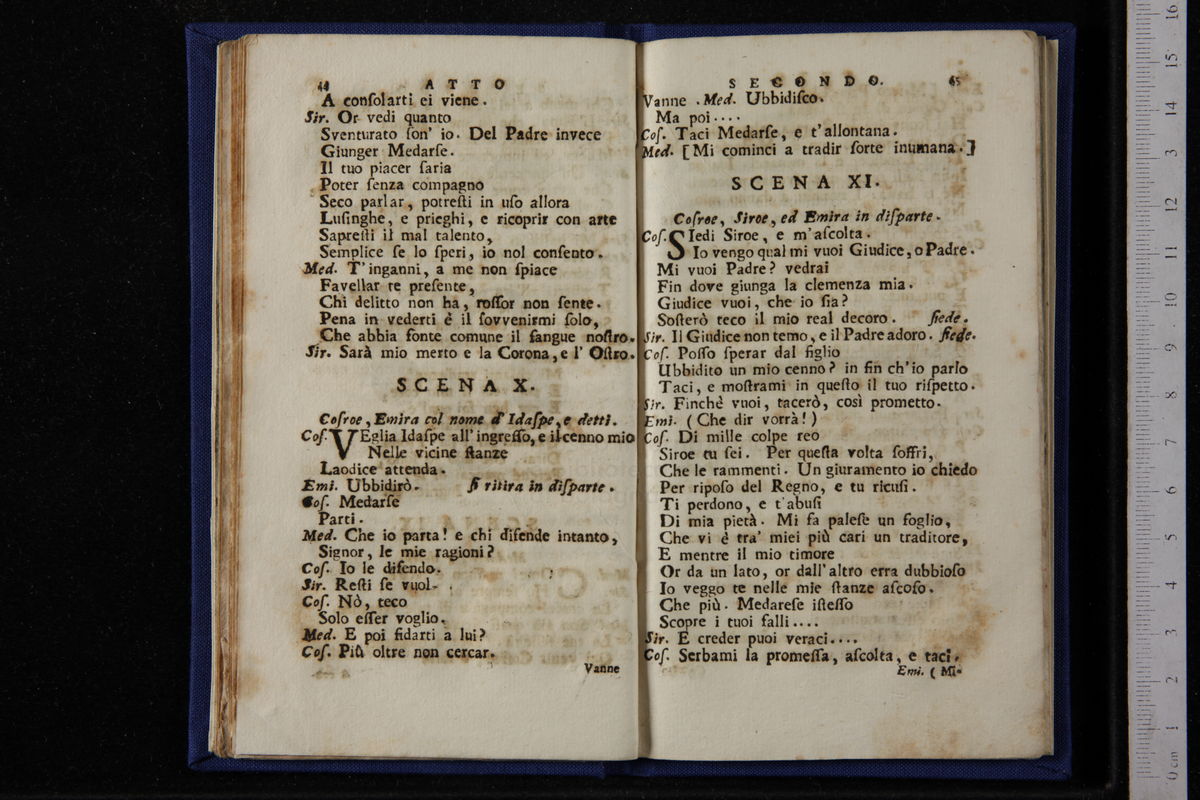 44 ATTO
A conſolarti ei viene.
Sir. Or vedi quanto
Sventurato ſon' io. Del Padre invece
Giunger Medarſe.
Il tuo piacer ſaria
Poter ſenza compagno
Seco parlar, potreſti in uſo allora
Luſinghe, e prieghi, e ricoprir con arte
Sapreſti il mal talento,
Semplice ſe lo ſperi, io nol conſento.
Med. T'inganni, a me non ſpiace
Favellar te preſente,
Chi delitto non ha, roſſor non ſente.
Pena in vederti è il ſovvenirmi ſolo,
Che abbia fonte comune il ſangue noſtro.
Sir. Sarà mio merto e la Corona, e l' Oſtro.
SCENA X.
Coſroe, Emira col nome d' Idaſpe, e detti.
Coſ. VEglia Idaſpe all' ingreſſo, e il cenno mio
Nelle vicine ſtanze
Laodice attenda.
Emi. Ubbidirò. ſi ritira in diſparte.
Coſ. Medarſe
Parti.
Med. Che io parta! e chi difende intanto,
Signor, le mie ragioni?
Coſ. Io le difendo.
Sir. Reſti ſe vuol.
Coſ. Nò, teco
Solo eſſer voglio.
Med. E poi fidarti a lui?
Coſ. Più oltre non cercar.
Vanne
SECONDO. 45
Vanne. Med. Ubbidiſco.
Ma poi....
Coſ. Taci Medarſe, e t'allontana.
Med. [Mi cominci a tradir ſorte inumana.]
SCENA XI.
Coſroe, Siroe, ed Emira in diſparte.
Coſ. SIedi Siroe, e m'aſcolta.
Io vengo qual mi vuoi Giudice, o Padre.
Mi vuoi Padre? vedrai
Fin dove giunga la clemenza mia.
Giudice vuoi, che io ſia?
Soſterò teco il mio real decoro. ſiede.
Sir. Il Giudice non temo, e il Padre adoro. ſiede.
Coſ. Poſſo ſperar dal figlio
Ubbidito un mio cenno? in fin ch'io parlo
Taci, e moſtrami in queſto il tuo riſpetto.
Sir. Finchè vuoi, tacerò, così prometto.
Emi. (Che dir vorrà!)
Coſ. Di mille colpe reo
Siroe tu ſei. Per queſta volta ſoffri,
Che le rammenti. Un giuramento io chiedo
Per ripoſo del Regno, e tu ricuſi.
Ti perdono, e t'abuſi
Di mia pietà. Mi fa paleſe un foglio,
Che vi è tra' miei più cari un traditore,
E mentre il mio timore
Or da un lato, or dall'altro erra dubbioſo
Io veggo te nelle mie ſtanze aſcoſo.
Che più. Medareſe iſteſſo
Scopre i tuoi falli....
Sir. E creder puoi veraci....
Coſ. Serbami la promeſſa, aſcolta, e taci.
Emi. (Mi-
0 cm 1 2 3 4 5 6 7 8 9 10 11 12 13 14 15 16